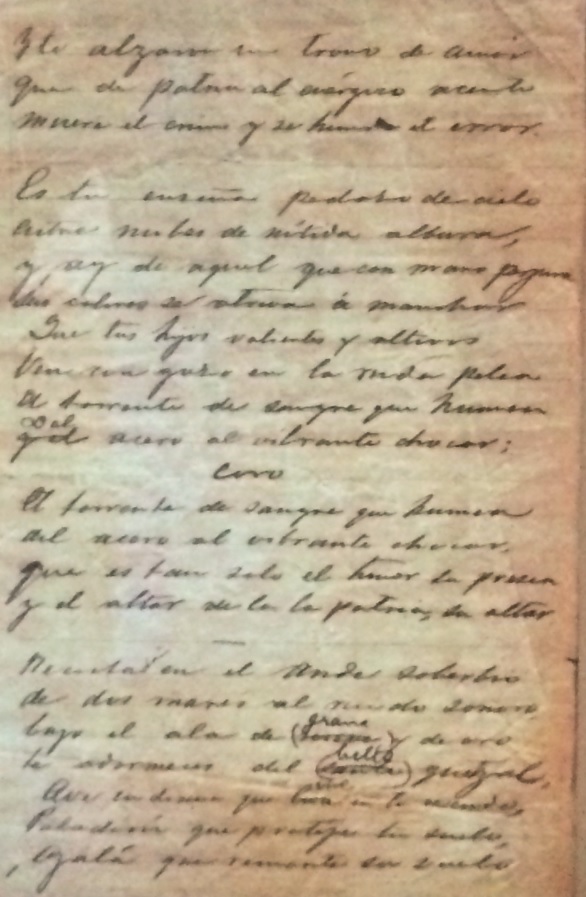 Y le alzaron un trono de amor
que de patria al enérgico acento
muere el crimen y se hunde el error.
Es tu enseña pedazo de cielo
entre nubes de nítida albura,
y ay de aquel que con mano perjura
sus colores se atreva á manchar
Que tus hijos valientes y altivos
Ven con gozo en la ruda pelea
El torrente de sangre que humea
acero al vibrante chocar;
Coro
El torrente de sangre que humea
del acero al vibrante chocar.
que es tan solo el honor su presea
y el altar de la la patria, su altar
Recostada en el Ande soberbio
de dos mares al ruido sonoro
grana
bajo el ala de ( ) y de oro
bello
te adormeces del ( ) quetzal.
Ave indiana que en tu escudo,
Paladión que protege tu suelo,
Ojalá que remonte su vuelo